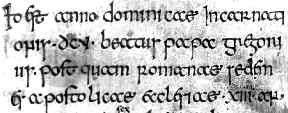 Id est anno dominicae Incarnati
onis · dcv · beatus papa gregori
us post quam romanae sedem
apostolicae ecclesiae · xiii ·